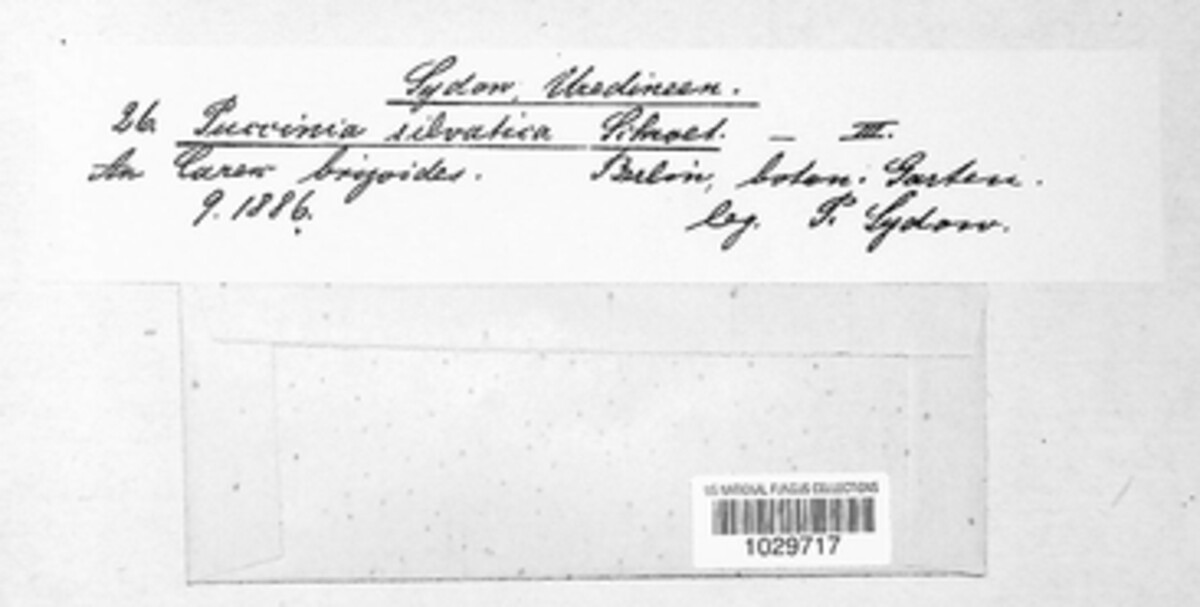 Sydow, Uredineen.
26. Puccinia silvatica Schroet. — III.
An Carex brizoides. Berlin, botan. Garten.
9. 1886. leg. P. Sydow.
US NATIONAL FUNGUS COLLECTIONS
1029717